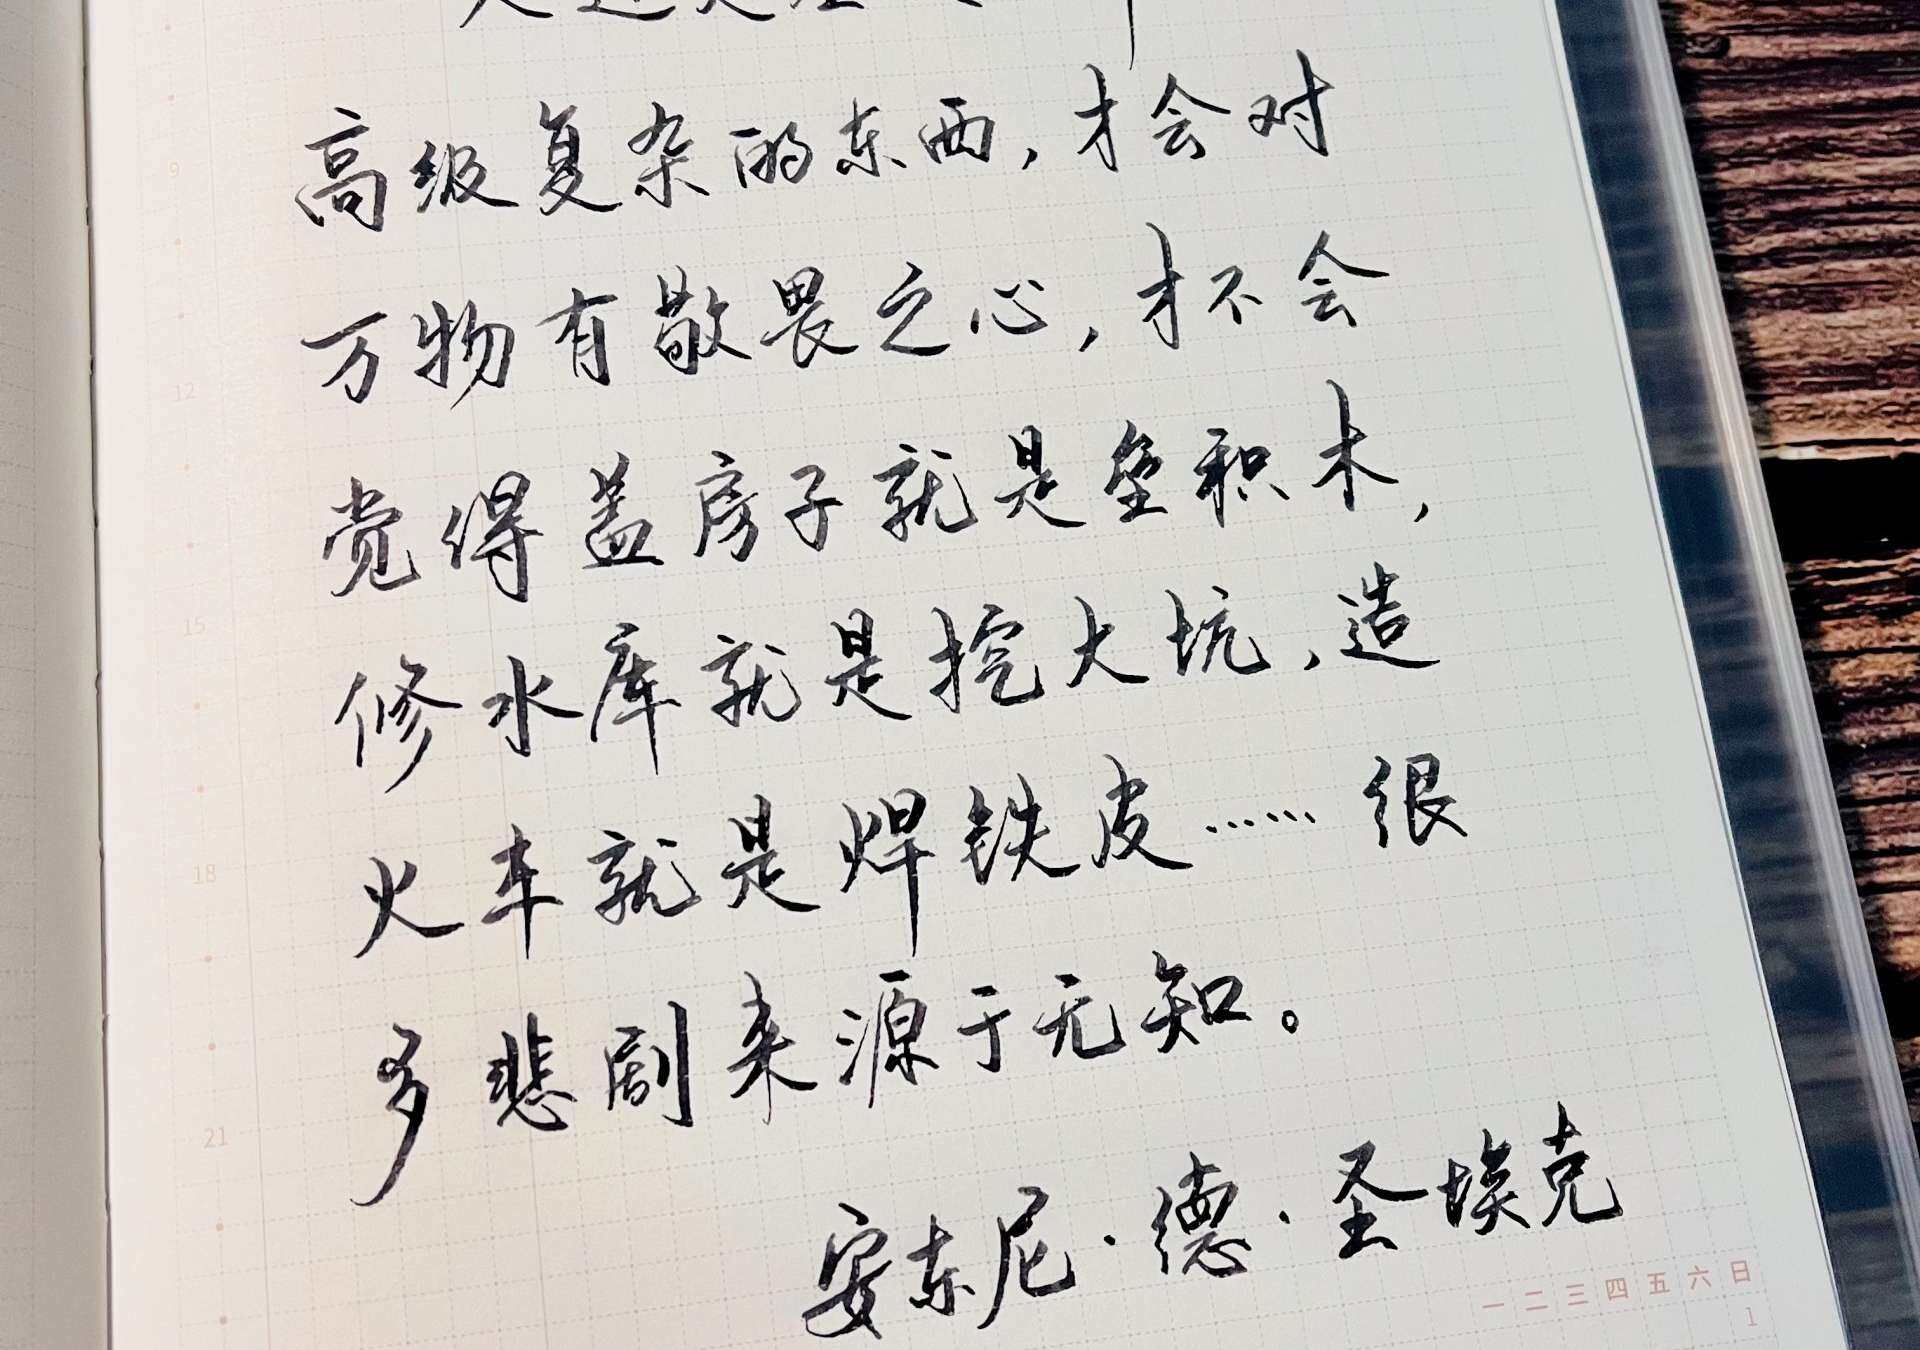 9
高级复杂的东西，才会对
万物有敬畏之心，才不会
12
觉得盖房子就是垒积木，
15
修水库就是挖大坑，造
18
火车就是焊铁皮……很
多悲剧来源于无知。
21
安东尼·德·圣埃克
一 二 三 四 五 六 日
1